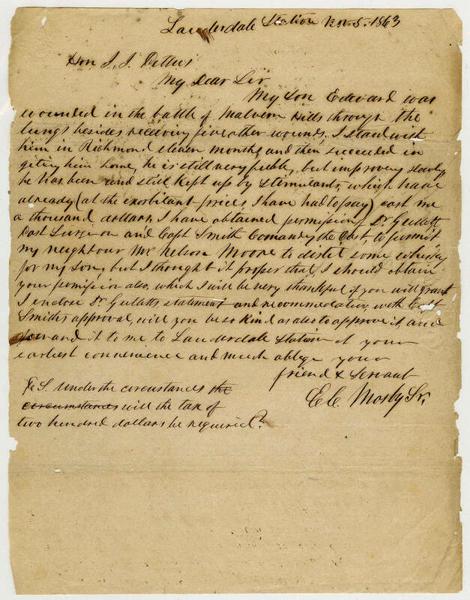 Lauderdale Station Nov. 5. 1863
Hon J. J. Pettus
My Dear Sir
My Son Edward was
wounded in the battle of Malvern Hills through the
lungs besides receiving five other wounds. I staid with
him in Richmond eleven months and then succeeded in
geting him home, he is still very feeble, but improveing slowly
he has been and still kept up by stimulants, which have
already (at the exorbitant prices I have had to pay) cost me
a thousand dollars, I have obtained permission Dr
Post Surgeon and Capt Smith Comanding the Post to permit
my neighbour Mr Nelson Moore to distel some whiskey
for my Son, but I thought it proper that I should obtain
your permission also, which I will be very thankful if you will grant
I enclose Dr statement and recommendation with Capt
Smiths approval, will you be so kind as also to approve it and
send it to me to Lauderdale Station at your
earliest convenience and much oblige your
friend & Servant
E C Mosby Sr.
P.S. Under the circustances the
circumstances will the tax of
two hundred dollars be required?